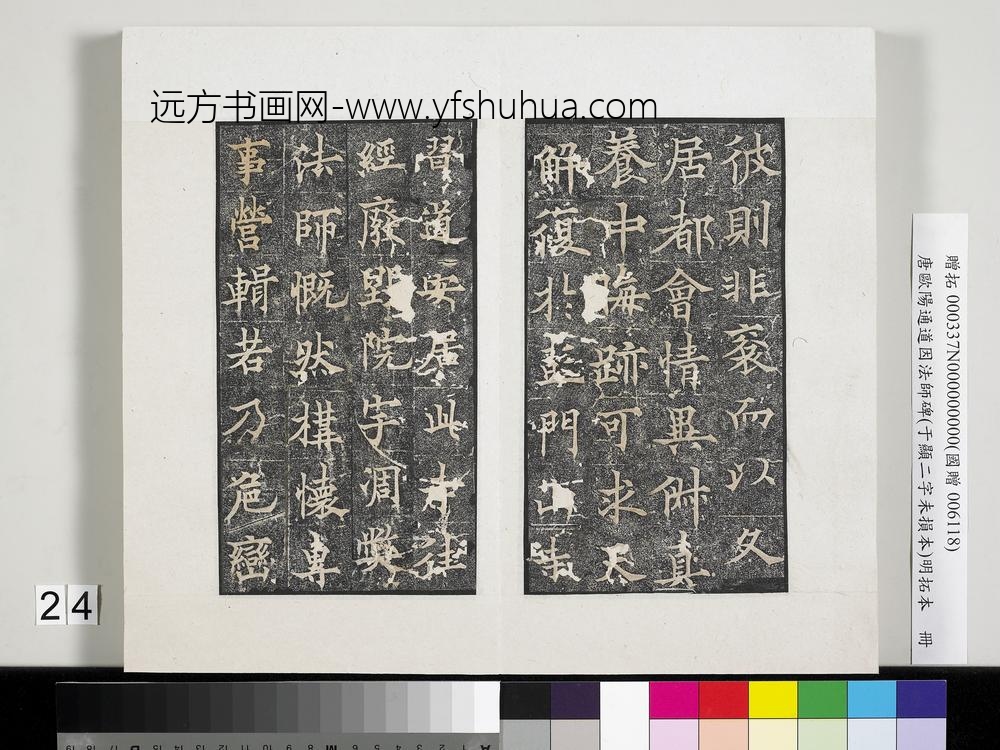 远方书画网-www.yfshuhua.com
彼則非衮而以久
居都會情異附真
養中晦跡可求天
解復於彭門山寺
習道安居此寺往
經廢毀院宇凋弊
法師慨然構懷專
事營輯若乃危巒
贈拓 000337N000000000(國贈 006118)
唐歐陽通道因法師碑(于顯二字未損本)明拓本 冊
24